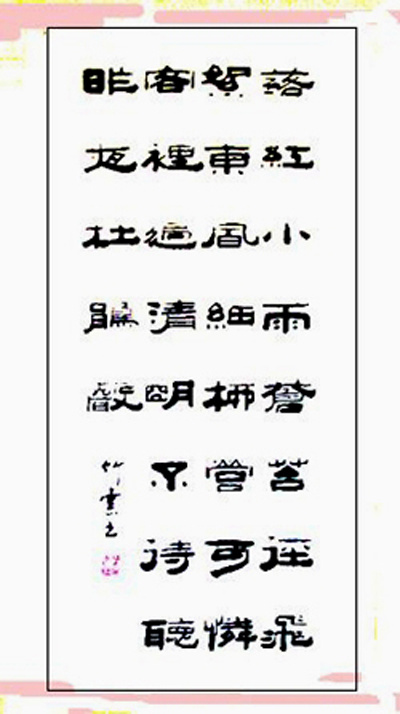 落紅小雨蒼苔徑飛
絮東風細柳營可憐
客裡過清朙不待聽
昨夜杜鵑聲